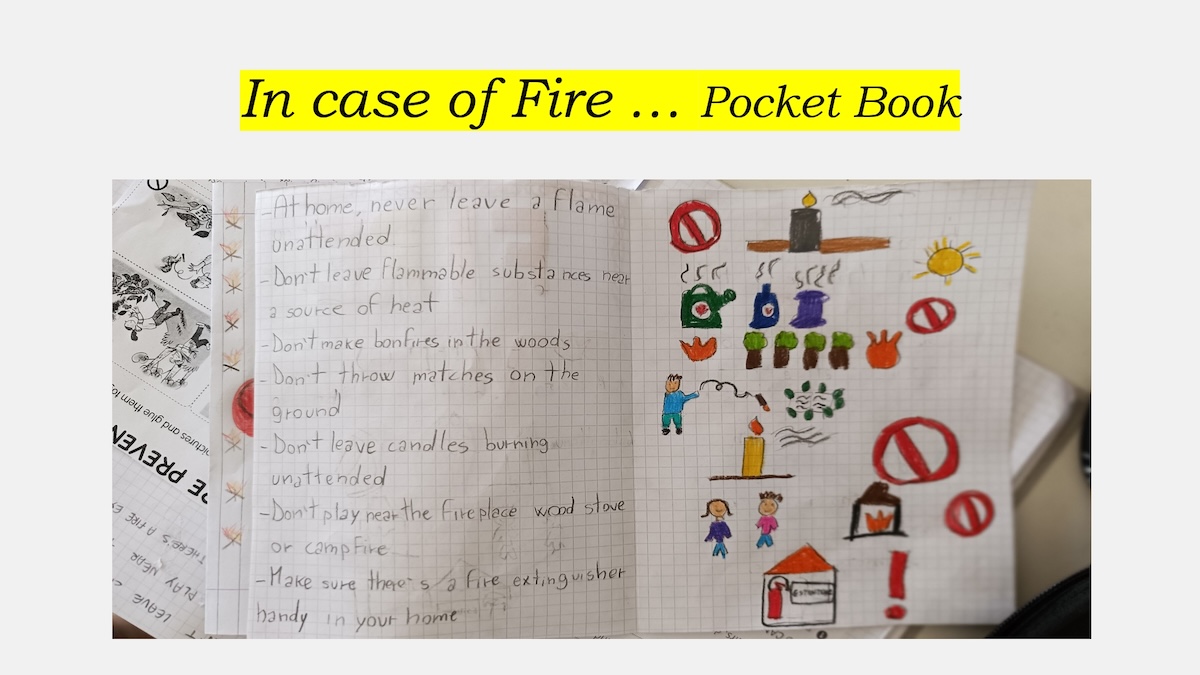 In case of Fire ... Pocket Book
-At home, never leave a flame
unattended.
-Don't leave flammable substances near
a source of heat
-Don't make bonfires in the woods
-Don't throw matches on the
ground
-Don't leave candles burning
unattended
-Don't play near the fireplace wood stove
or campfire
-Make sure there's a fire extinguisher
handy in your home
ictures and glue them
RE PREVEN
THERE'S A FIRE
PLAY NEAR
LEAVE